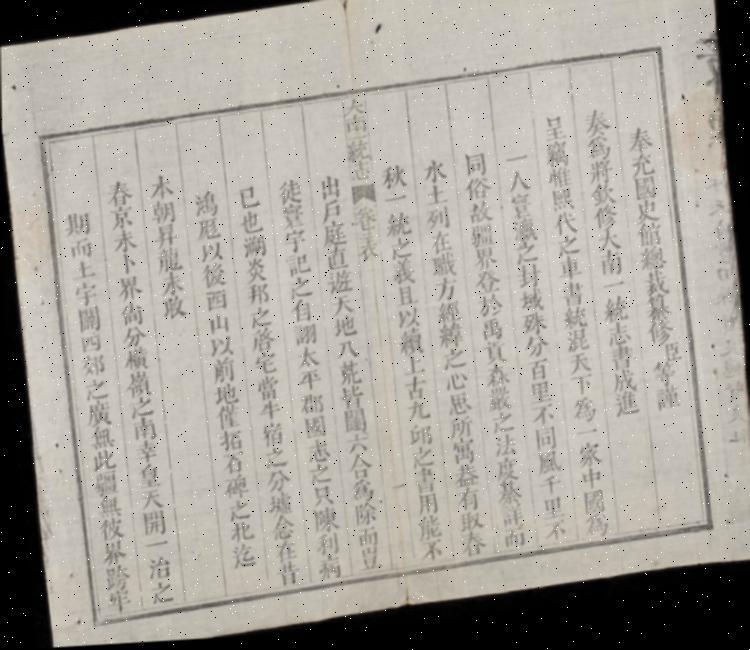 奉充國史館總裁纂修臣等謹
奏為將欽修大南一統志書成進
呈竊惟熙代之車書統混天下為一家中國為
一人寰瀛之封域殊分百里不同風千里不
同俗故疆界谷於禹貢森嚴之法度綦詳而
水土列在職方經緯之心思所寓蓋有取春
秋一統之義且以續上古九邱之書用能不
大南一統志 卷 表
出戶庭直遊天地八荒皆闥六合為除而豈
徒寰宇記之自詡太平郡國志之只陳利病
已也溯炎邦之啓宅當牛宿之分墟念在昔
鴻厖以後西山以前地僅拓石碑之北迄
本朝昇龍未啟
春京未卜界尚分橫嶺之南幸皇天開一治之
期而土宇闢四郊之廣無此疆無彼界跨牢